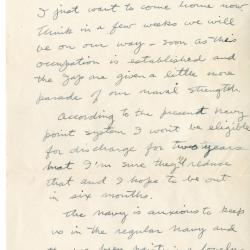 I just want to come home now.
Think in a few weeks we will
be on our way - soon as this
occupation is established and
the Japs are given a little more
parade of our naval strength.
According to the present Navy
point system I won't be eligible
for discharge for two years
but I'm sure they'll reduce
that and I hope to be out
in six months.
The Navy is anxious to keep
us in the regular Navy and